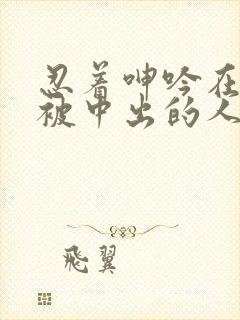 忍着呻吟在
被中出的人
飛翼